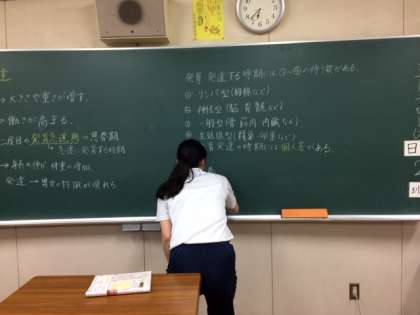 達
→大きさや重さが増す。
→働きが高まる。
二度目の発育急速期→思春期
急速に発育する時期
→身長の伸び 体重の増加
発達→男女の特徴が現れる
発育・発達する時期には①〜④の特徴がある。
① リンパ型(胸腺など)
② 神経型(脳、脊髄など)
③ 一般型(骨、筋肉、内臓など)
④ 生殖腺型(精巣・卵巣など)
発育・発達の時期には個人差がある。
日